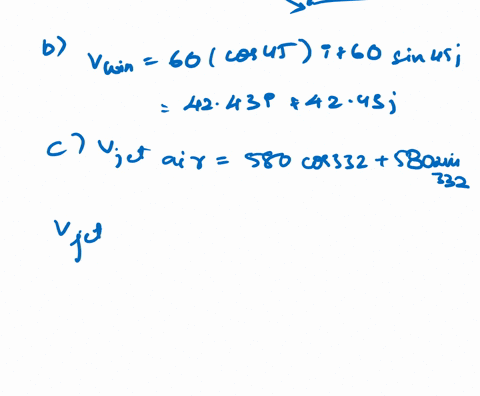 b) Vwin = 60 (cos 45) i + 60 sin 45 j
= 42.43 i + 42.43 j
c) Vjet air = 580 cos 332 + 580 sin 332
Vjet